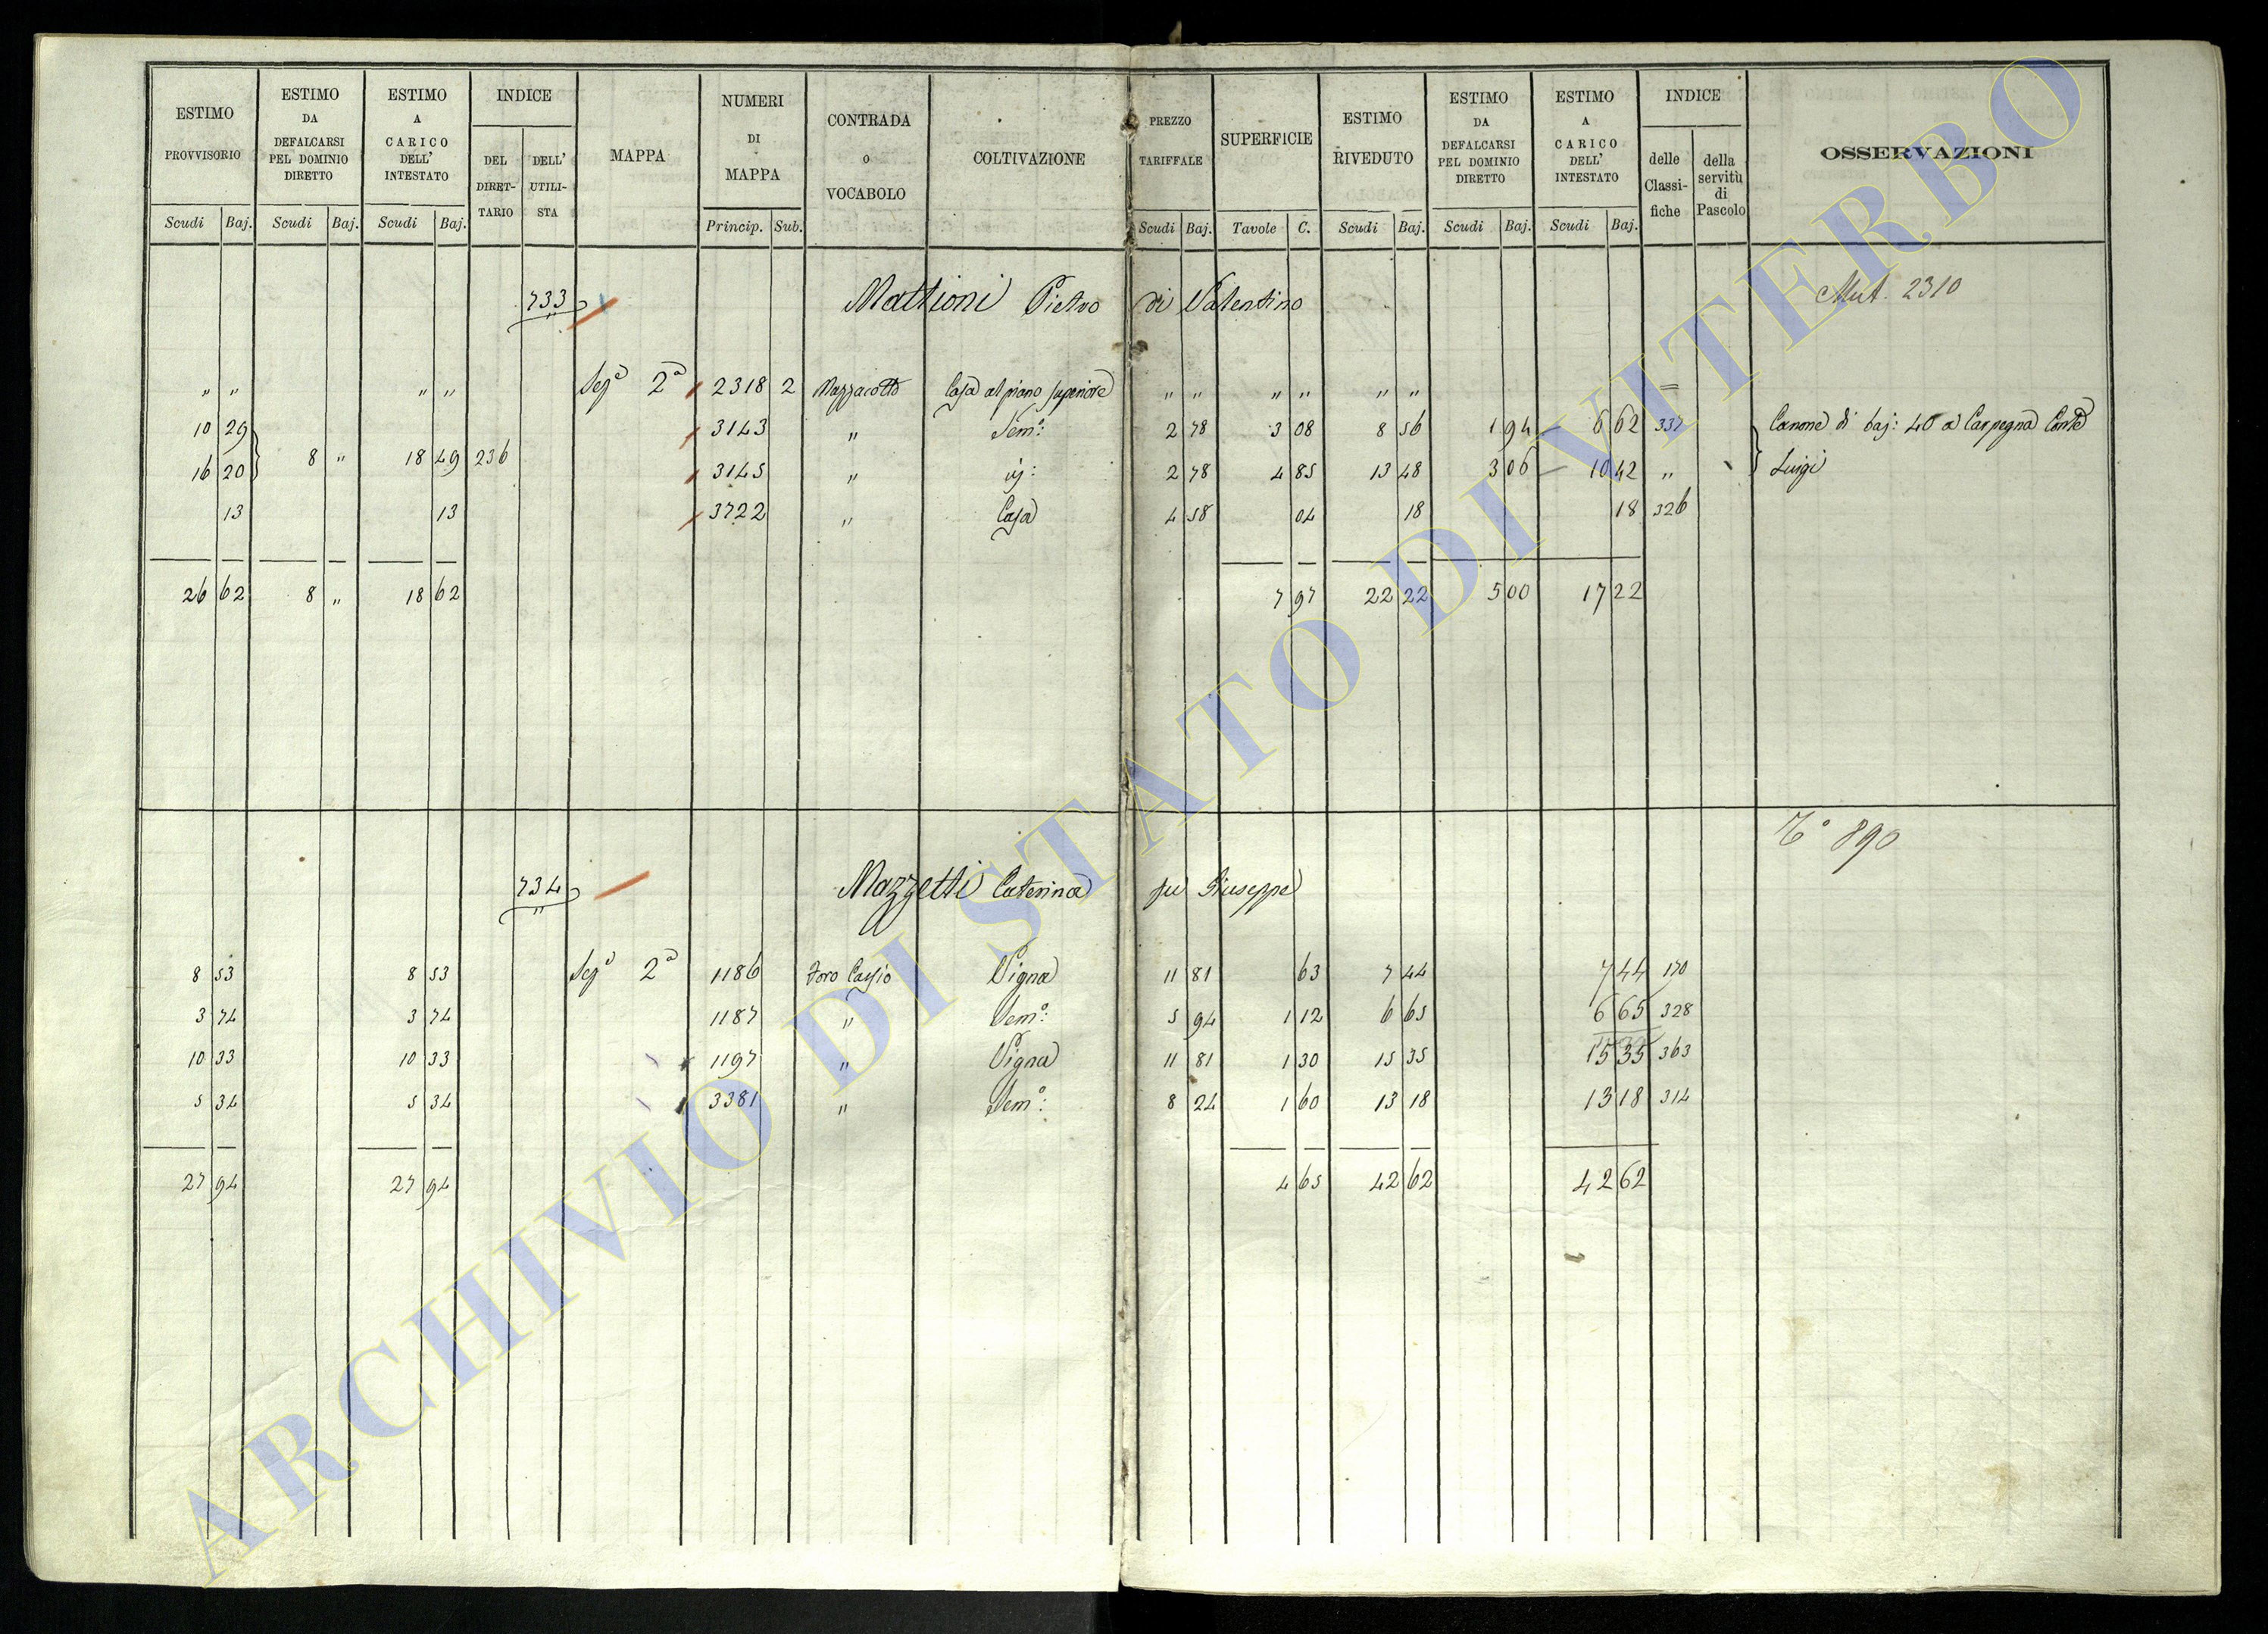 ESTIMO PROVVISORIO | ESTIMO DA DEFALCARSI PEL DOMINIO DIRETTO | ESTIMO A CARICO DELL' INTESTATO | INDICE | MAPPA | NUMERI DI MAPPA | CONTRADA O VOCABOLO | COLTIVAZIONE | PREZZO TARIFFALE | SUPERFICIE | ESTIMO RIVEDUTO | ESTIMO DA DEFALCARSI PEL DOMINIO DIRETTO | ESTIMO A CARICO DELL' INTESTATO | INDICE | OSSERVAZIONI
DEL DIRETTARIO | DELL' UTILISTA | delle Classifiche | della servitù di Pascolo
Scudi | Baj. | Scudi | Baj. | Scudi | Baj. | Princip. | Sub. | Scudi | Baj. | Tavole | C. | Scudi | Baj. | Scudi | Baj. | Scudi | Baj.
733 Mattioni Pietro di Valentino Mut. 2310
" " " " Sez.e 2a 2318 2 Mazzacotto Casa al piano superiore " " " " " " =
10 29 3143 " Sem.o: 2 78 3 08 8 56 1 94 6 62 337 Canone di baj: 40 a Carpegna Conte
16 20 8 " 18 49 236 3145 " id: 2 78 4 85 13 48 3 06 10 42 " Luigi
13 13 3722 " Casa 4 58 04 18 18 326
26 62 8 " 18 62 7 97 22 22 5 00 17 22
To 890
734 Mazzetti Caterina fu Giuseppe
8 53 8 53 Sez.e 2a 1186 Foro Cassio Vigna 11 81 63 7 44 7 44 170
3 74 3 74 1187 " Sem.o: 5 94 1 12 6 65 6 65 328
10 33 10 33 1197 " Vigna 11 81 1 30 15 35 15 35 363
5 34 5 34 3381 " Sem.o: 8 24 1 60 13 18 13 18 314
27 94 27 94 4 65 42 62 42 62
ARCHIVIO DI STATO DI VITERBO